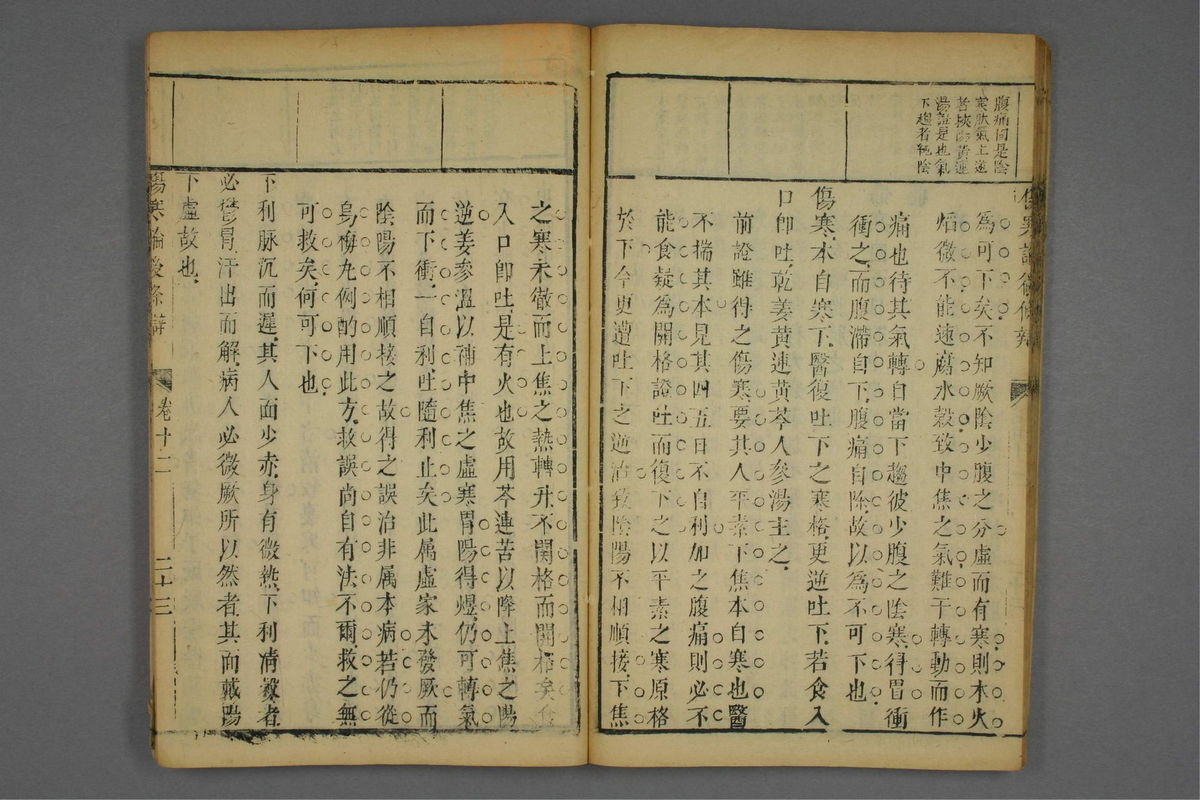 腹痛同是陰
寒肽氣上逆
者挾陽黃連
湯證是也氣
下趨者純陰
傷寒論後條辨
為可下矣不知厥陰少腹之分虛而有寒則本火
焰微不能速腐水穀致中焦之氣難于轉動而作
痛也待其氣轉自當下趨彼少腹之陰寒得胃衝
衝之而腹滯自下腹痛自除故以為不可下也
傷寒本自寒下醫復吐下之寒格更逆吐下若食入
口即吐乾姜黃連黃芩人參湯主之
前證雖得之傷寒要其人平素下焦本自寒也醫
不揣其本見其四五日不自利加之腹痛則必不
能食疑為關格證吐而復下之以平素之寒原格
於下今更遭吐下之逆治致陰陽不相順接下焦
之寒未徹而上焦之熱轉升不關格而關格矣食
入口即吐是有火也故用芩連苦以降上焦之陽
逆姜參溫以補中焦之虛寒胃陽得煖仍可轉氣
而下衝一自利吐隨利止矣此属虛家未發厥而
陰陽不相順接之故得之誤治非属本病若仍從
烏梅丸例酌用此方救誤尚自有法不爾救之無
可救矣何可下也
下利脉沉而遲其人面少赤身有微熱下利清穀者
必鬱冒汗出而解病人必微厥所以然者其面戴陽
下虛故也
傷寒論後條辨 卷十二 二十三